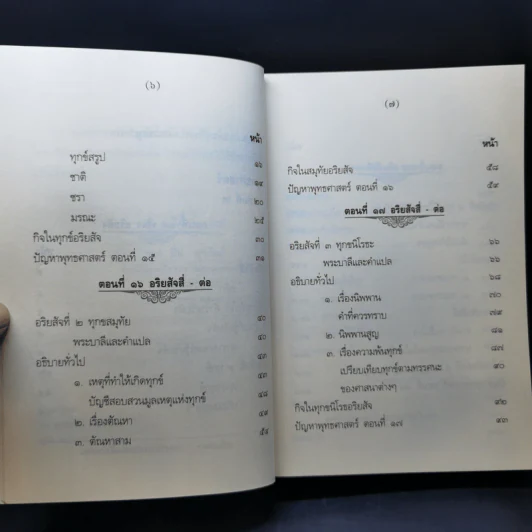 (๖)
หน้า
ทุกข์สรุป ๑๖
ชาติ ๑๙
ชรา ๒๐
มรณะ ๒๕
กิจในทุกข์อริยสัจ ๓๐
ปัญหาพุทธศาสตร์ ตอนที่ ๑๕ ๓๑
ตอนที่ ๑๖ อริยสัจสี่ - ต่อ
อริยสัจที่ ๒ ทุกขสมุทัย ๔๐
พระบาลีและคำแปล ๔๐
อธิบายทั่วไป ๔๓
๑. เหตุที่ทำให้เกิดทุกข์ ๔๓
บัญชีสอบสวนมูลเหตุแห่งทุกข์ ๔๘
๒. เรื่องตัณหา ๔๙
๓. ตัณหาสาม ๕๔
(๗)
หน้า
กิจในสมุทัยอริยสัจ ๕๘
ปัญหาพุทธศาสตร์ ตอนที่ ๑๖ ๕๙
ตอนที่ ๑๗ อริยสัจสี่ - ต่อ
อริยสัจที่ ๓ ทุกขนิโรธะ ๖๖
พระบาลีและคำแปล ๖๖
อธิบายทั่วไป ๖๘
๑. เรื่องนิพพาน ๗๐
คำที่ควรทราบ ๗๙
๒. นิพพานสูญ ๘๑
๓. เรื่องความพ้นทุกข์ ๘๗
เปรียบเทียบทุกข์ตามทรรศนะ ๙๐
ของศาสนาต่างๆ
กิจในทุกขนิโรธอริยสัจ ๙๒
ปัญหาพุทธศาสตร์ ตอนที่ ๑๗ ๙๓